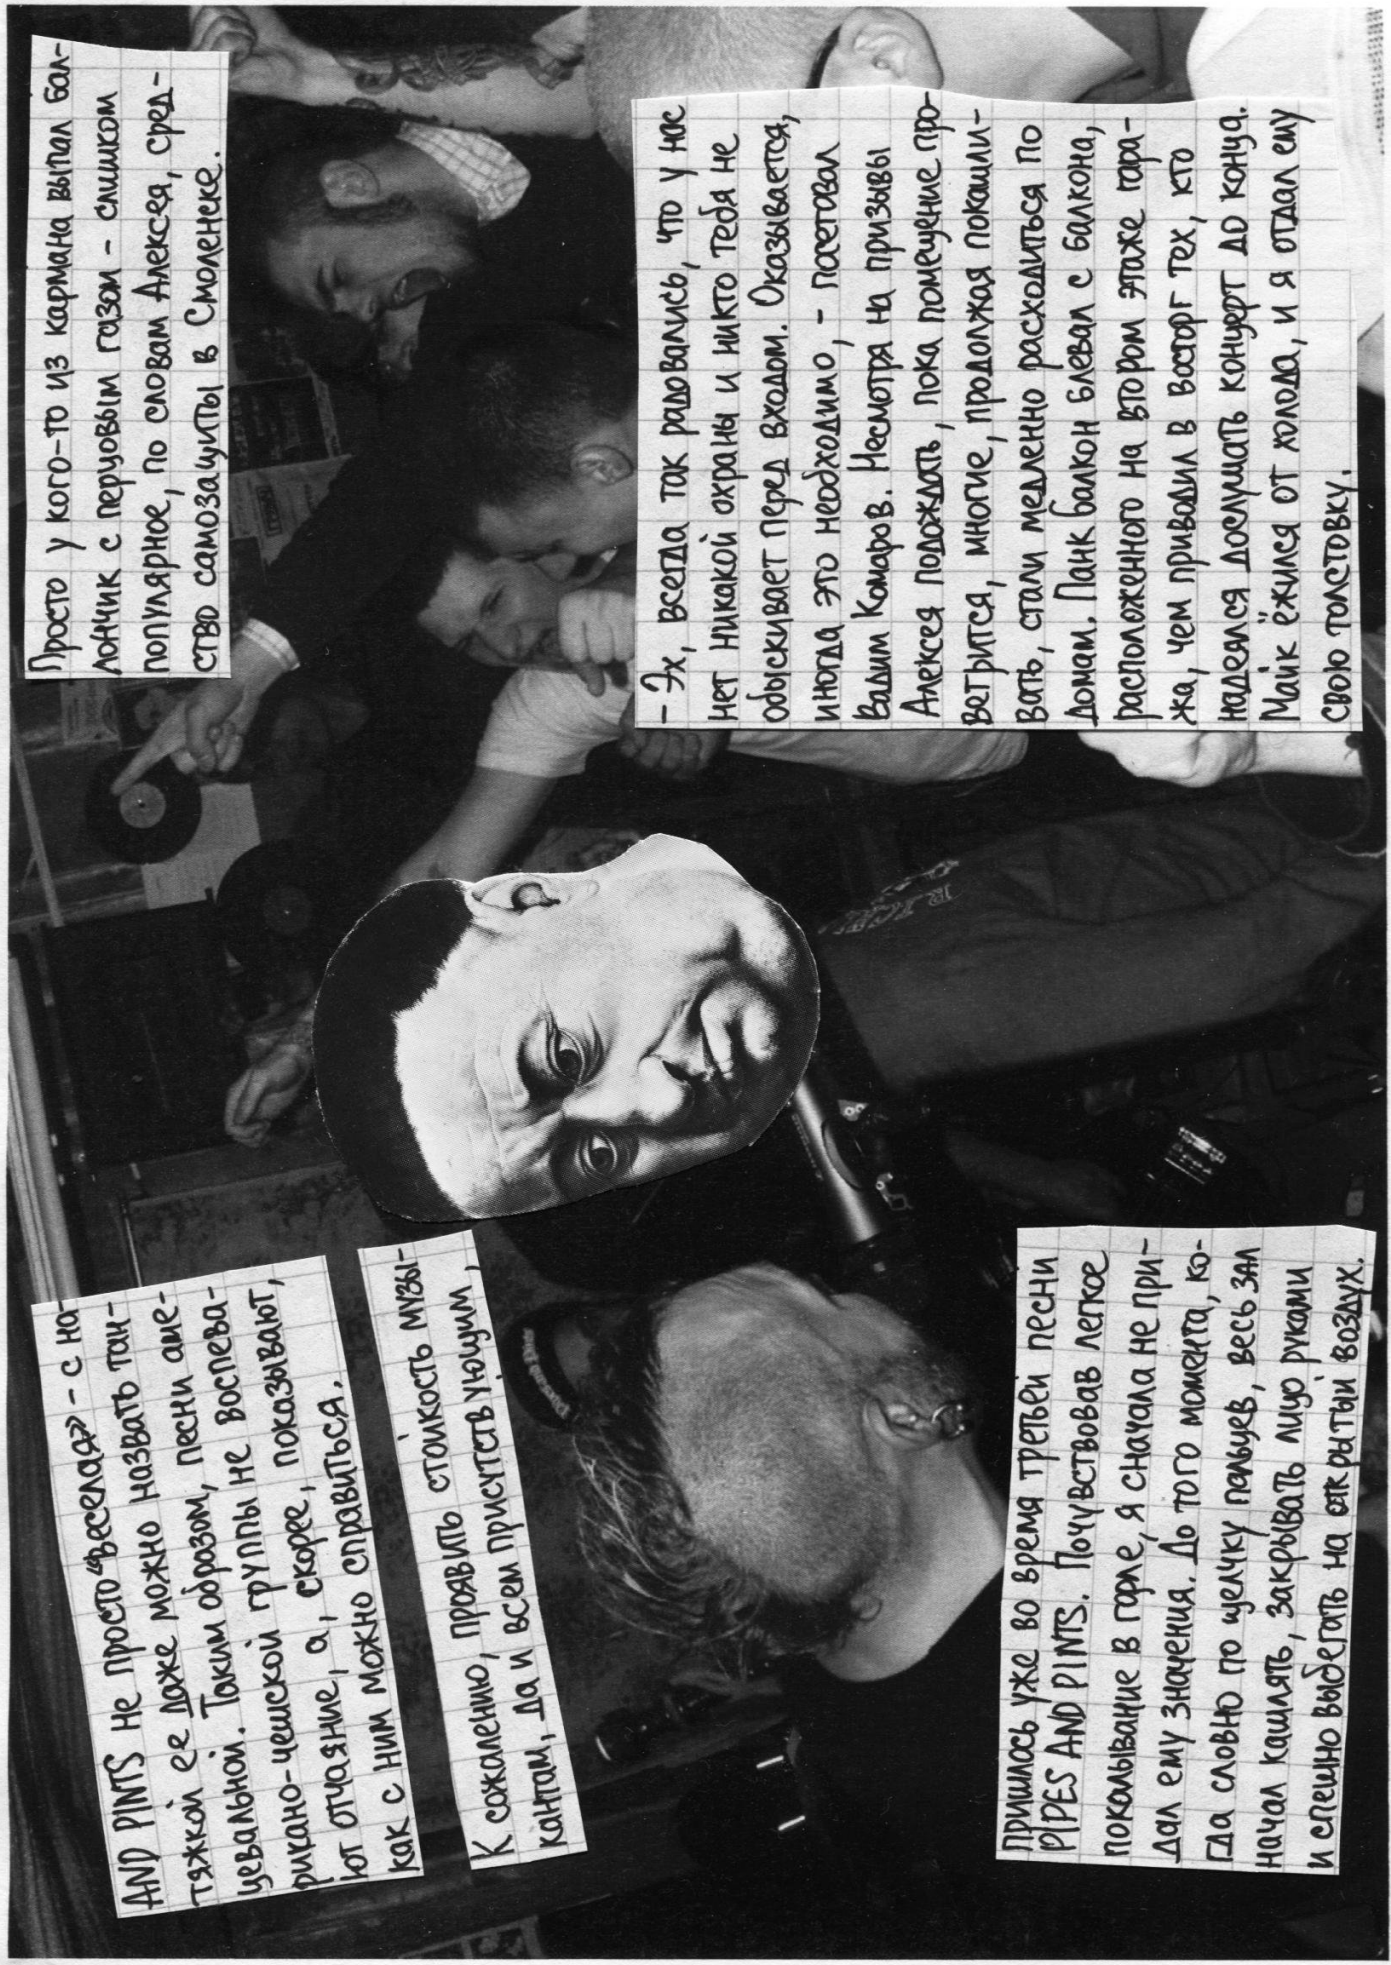 AND PINTS не просто “веселая” - с на-
тяжкой ее даже можно назвать тан-
цевальной. Таким образом, песни аме-
рикано-чешской группы не воспева-
ют отчаяние, а, скорее, показывают,
как с ним можно справиться.
К сожалению, проявить стойкость музы-
кантам, да и всем присутствующим,
пришлось уже во время третьей песни
PIPES AND PINTS. Почувствовав легкое
покалывание в горле, я сначала не при-
дал ему значения. До того момента, ко-
гда словно по щелчку пальцев, весь зал
начал кашлять, закрывать лицо руками
и спешно выбегать на открытый воздух.
Просто у кого-то из кармана выпал бал-
лончик с перцовым газом - слишком
популярное, по словам Алексея, сред-
ство самозащиты в Смоленске.
- Эх, всегда так радовались, что у нас
нет никакой охраны и никто тебя не
обыскивает перед входом. Оказывается,
иногда это необходимо, - посетовал
Вадим Комаров. Несмотря на призывы
Алексея подождать, пока помещение про-
ветрится, многие, продолжая покашли-
вать, стали медленно расходиться по
домам. Панк Балкон блевал с балкона,
расположенного на втором этаже гара-
жа, чем приводил в восторг тех, кто
надеялся дослушать концерт до конца.
Майк ёжился от холода, и я отдал ему
свою толстовку.